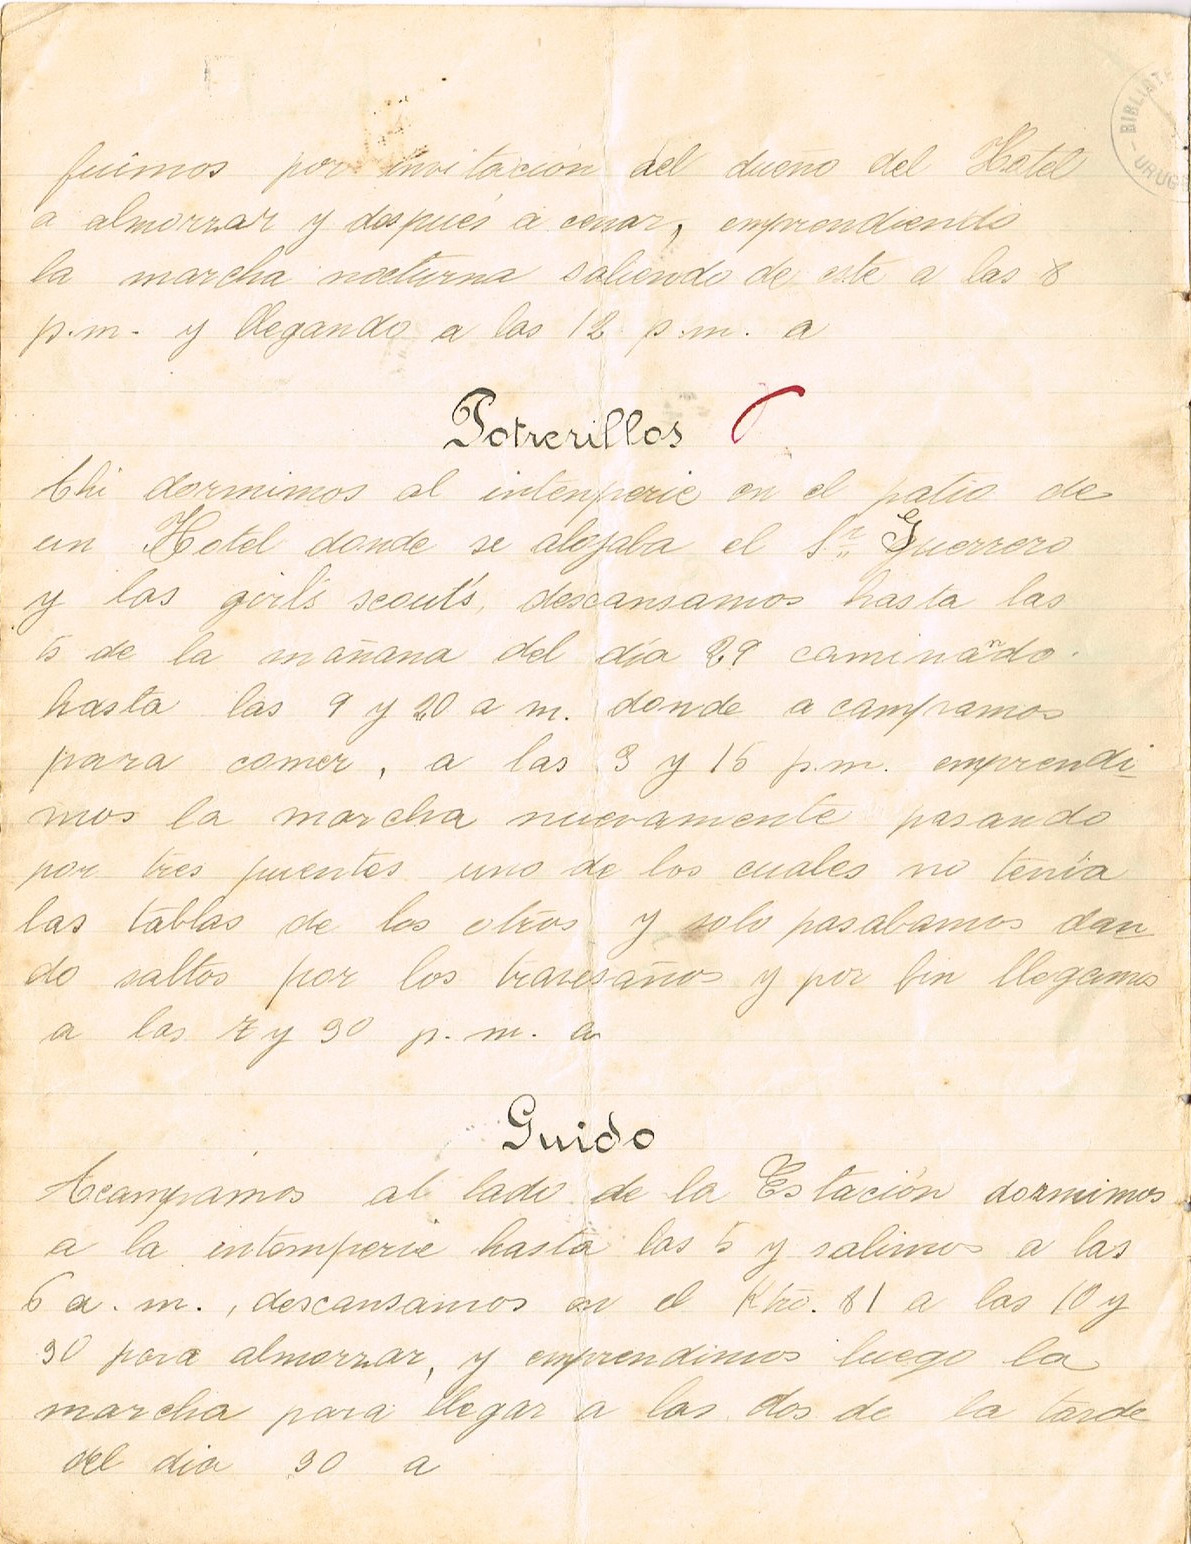 fuimos por invitación del dueño del Hotel
a almorzar y después a cenar, emprendiendo
la marcha nocturna saliendo de este a las 8
p.m. y llegando a las 12 p.m. a
Potrerillos
Ahi dormimos al intenperie en el patio de
un Hotel donde se alojaba el Sr. Guerrero
y las girl's scout's, descansamos hasta las
5 de la mañana del día 29 caminando.
hasta las 9 y 20 a m. donde acampamos
para comer, a las 3 y 15 p.m. emprendi
mos la marcha nuevamente pasando
por tres puentes uno de los cuales no tenía
las tablas de los otros y solo pasabamos dan
do saltos por los travesaños y por fin llegamos
a las 7 y 30 p. m. a
Guido
Acampamos al lado de la Estación dormimos
a la intemperie hasta las 5 y salimos a las
6 a. m., descansamos en el Kto. 81 a las 10 y
30 para almorzar, y emprendimos luego la
marcha para llegar a las dos de la tarde
del dia 30 a